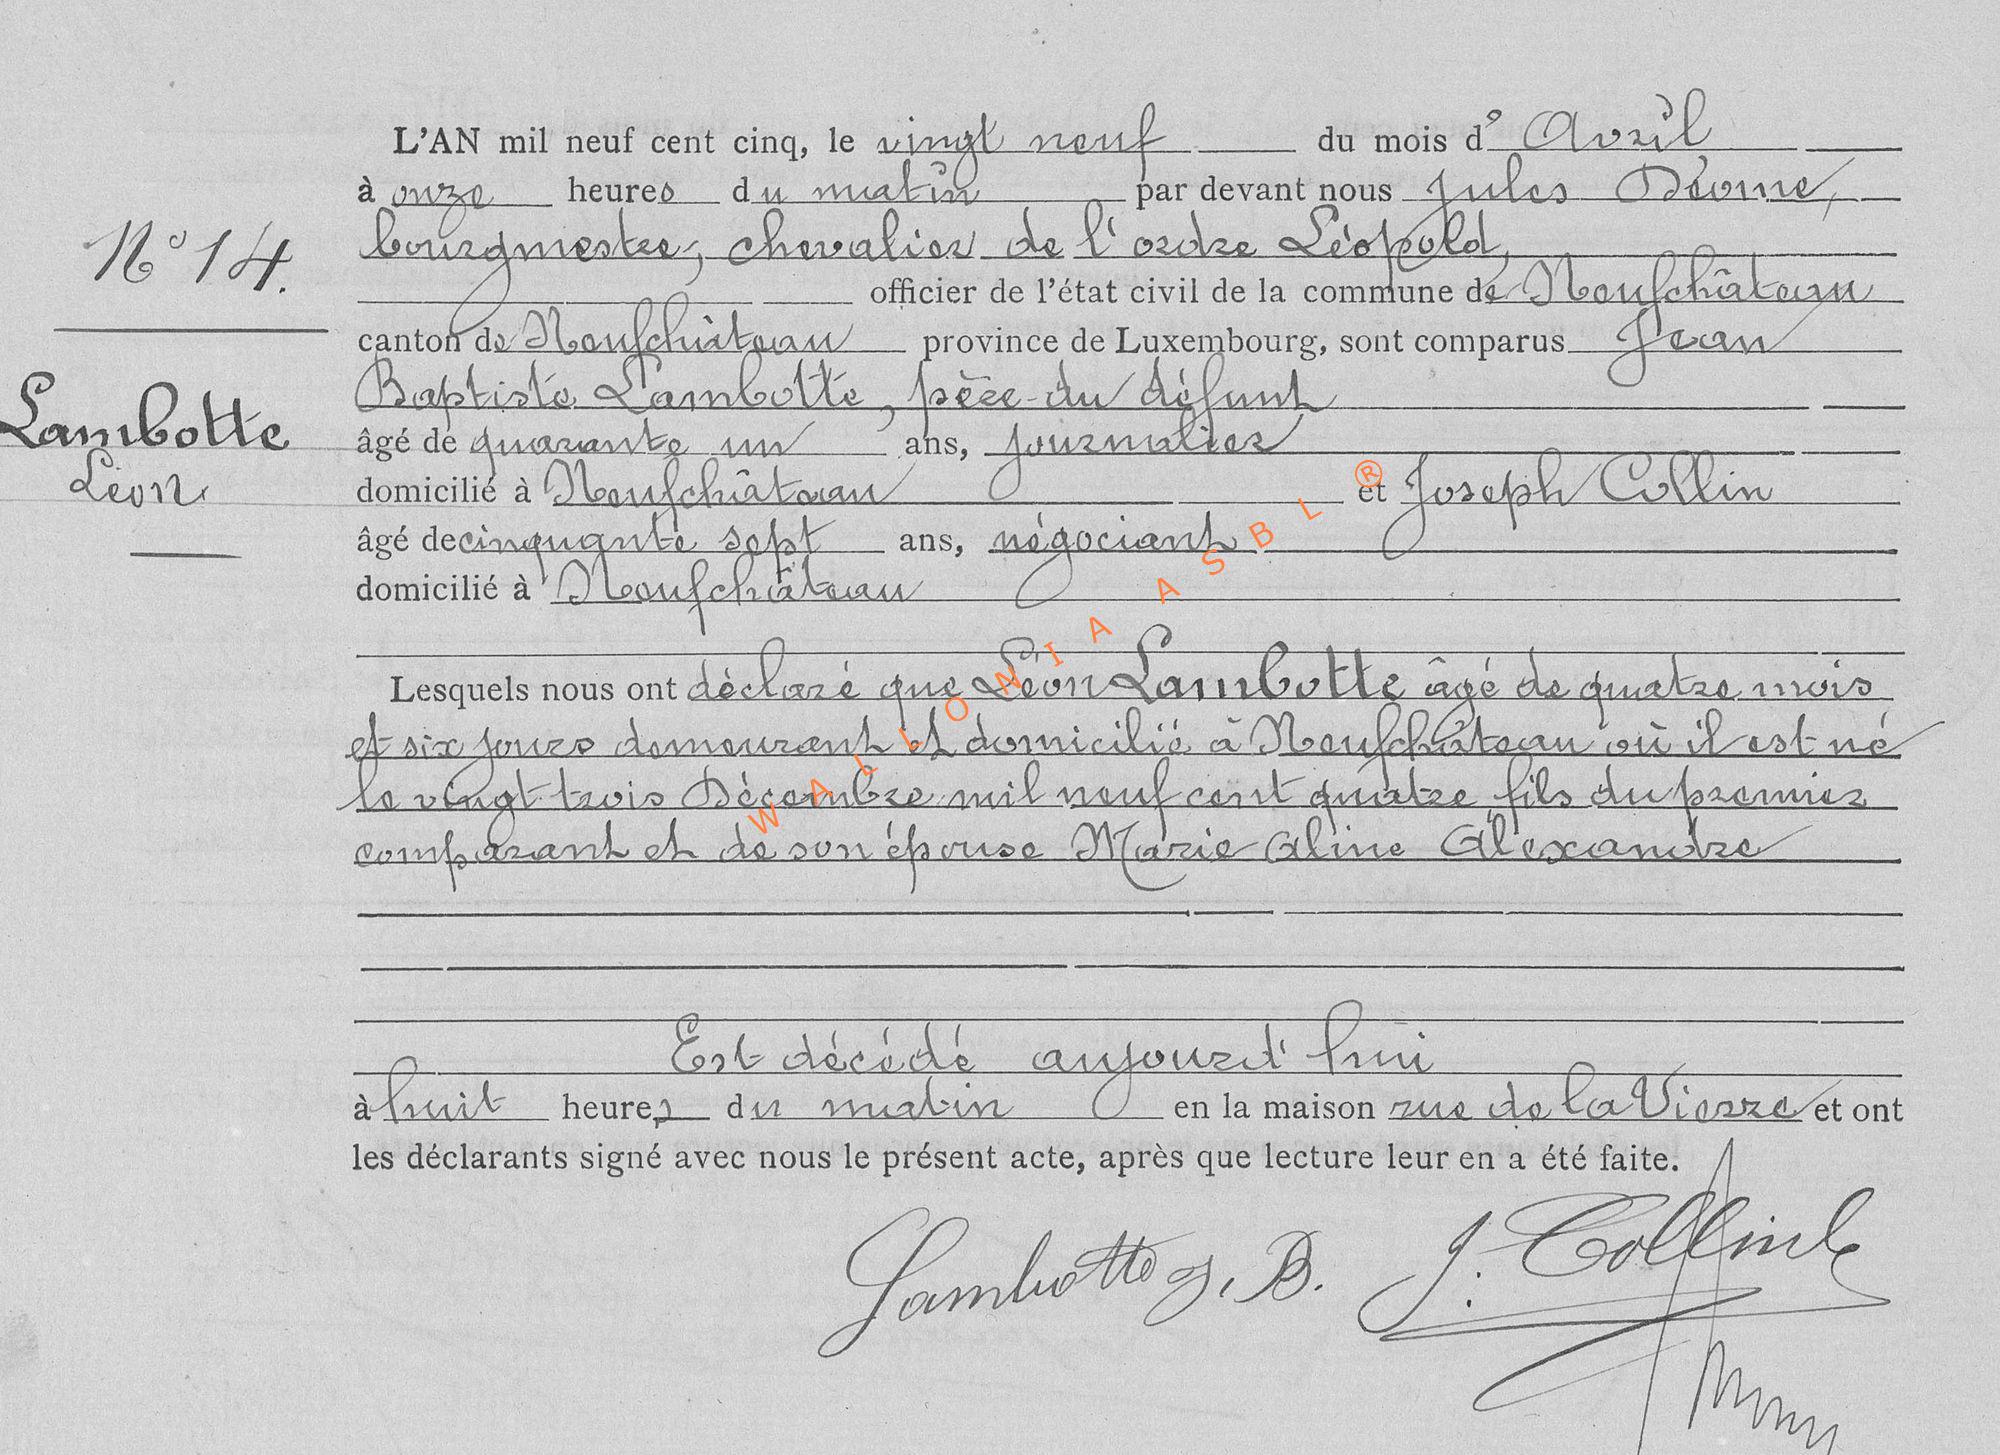 L'AN mil neuf cent cinq, le vingt neuf du mois d' Avril
à onze heures du matin par devant nous Jules Déome,
bourgmestre, chevalier de l'ordre Léopold,
N° 14.
officier de l'état civil de la commune de Neufchâteau
canton de Neufchâteau province de Luxembourg, sont comparus Jean
Baptiste Lambotte, père du défunt
Lambotte
Léon
âgé de quarante un ans, journalier
domicilié à Neufchâteau et Joseph Collin
âgé de cinquante sept ans, négociant
domicilié à Neufchâteau
Lesquels nous ont déclaré que Léon Lambotte âgé de quatre mois
et six jours demeurant et domicilié à Neufchâteau où il est né
le vingt trois Décembre mil neuf cent quatre fils du premier
comparant et de son épouse Marie Aline Alexandre
Est décédé aujourd'hui
à huit heures du matin en la maison rue de la Vierre et ont
les déclarants signé avec nous le présent acte, après que lecture leur en a été faite.
Lambotte J. B. J. Collin
WALLONIA ASBL ®